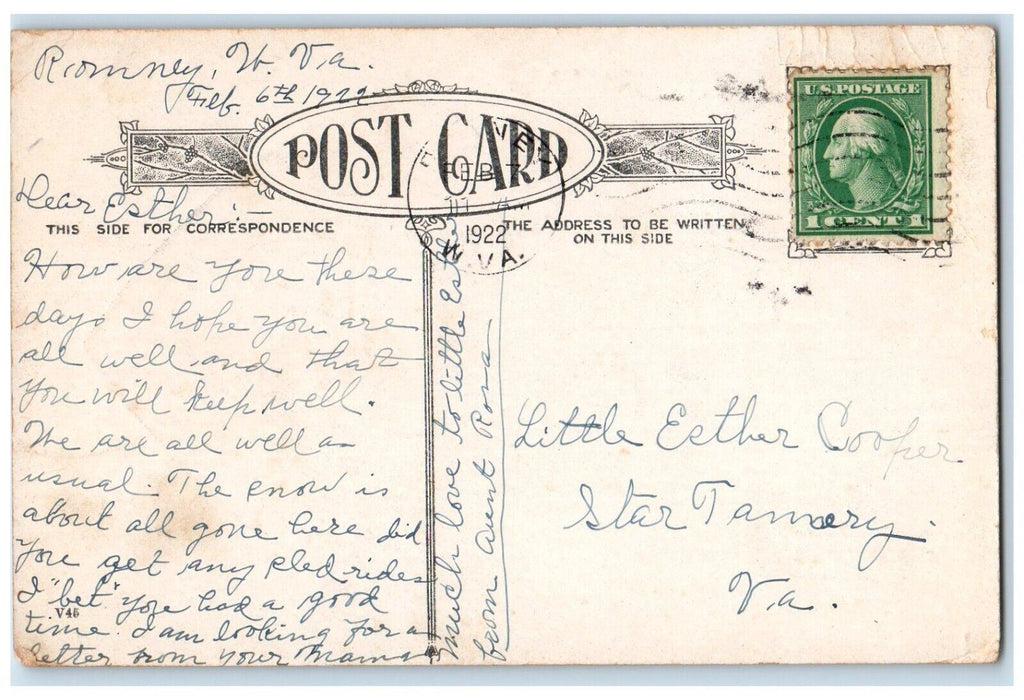 Romney, W. Va.
Feb. 6th 1922
POST CARD
FEB 7
1922
W. VA.
U.S. POSTAGE
1 CENT 1
Dear Esther:—
THIS SIDE FOR CORRESPONDENCE
THE ADDRESS TO BE WRITTEN
ON THIS SIDE
How are you these
days I hope you are
all well and that
you will keep well.
We are all well as
usual. The snow is
about all gone here did
you get any sled rides
I "bet" you had a good
V45
time. I am looking for a
letter from your mama
much love to little Esther
from Aunt Rosa
Little Esther Cooper
Star Tannery.
Va.